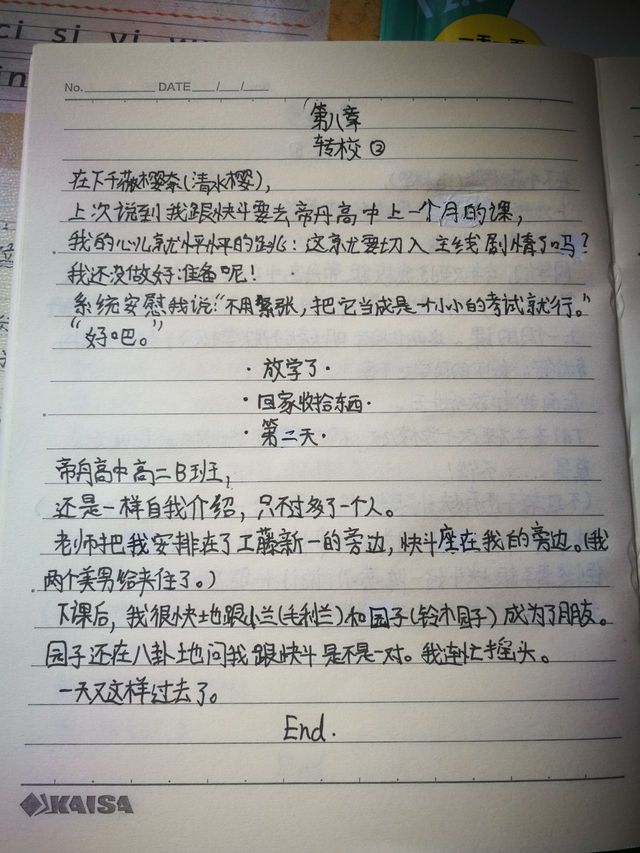 ci si yi
No. DATE / /
第八章
转校②
在下千薇樱奈(清水樱),
上次说到我跟快斗要去帝丹高中上一个月的课,
我的心儿就怦怦的跳:这就要切入主线剧情了吗?
我还没做好准备呢!
系统安慰我说:"不用紧张,把它当成是个小小的考试就行。"
"好吧。"
·放学了·
·回家收拾东西·
·第二天·
帝丹高中高二B班,
还是一样自我介绍,只不过多了一个人。
老师把我安排在了工藤新一的旁边,快斗座在我的旁边。(我
两个美男给夹住了。)
下课后,我很快地跟小兰(毛利兰)和园子(铃木园子)成为了朋友。
园子还在八卦地问我跟快斗是不是一对。我连忙摇头。
一天又这样过去了。
End.
KAISA